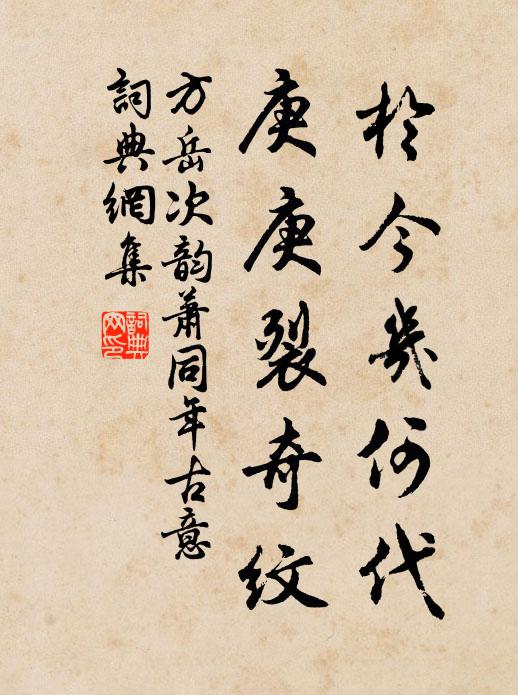 於今幾何代
庚庚裂奇紋
方岳次韵蕭同年古意
詞典網集
詞典
网印